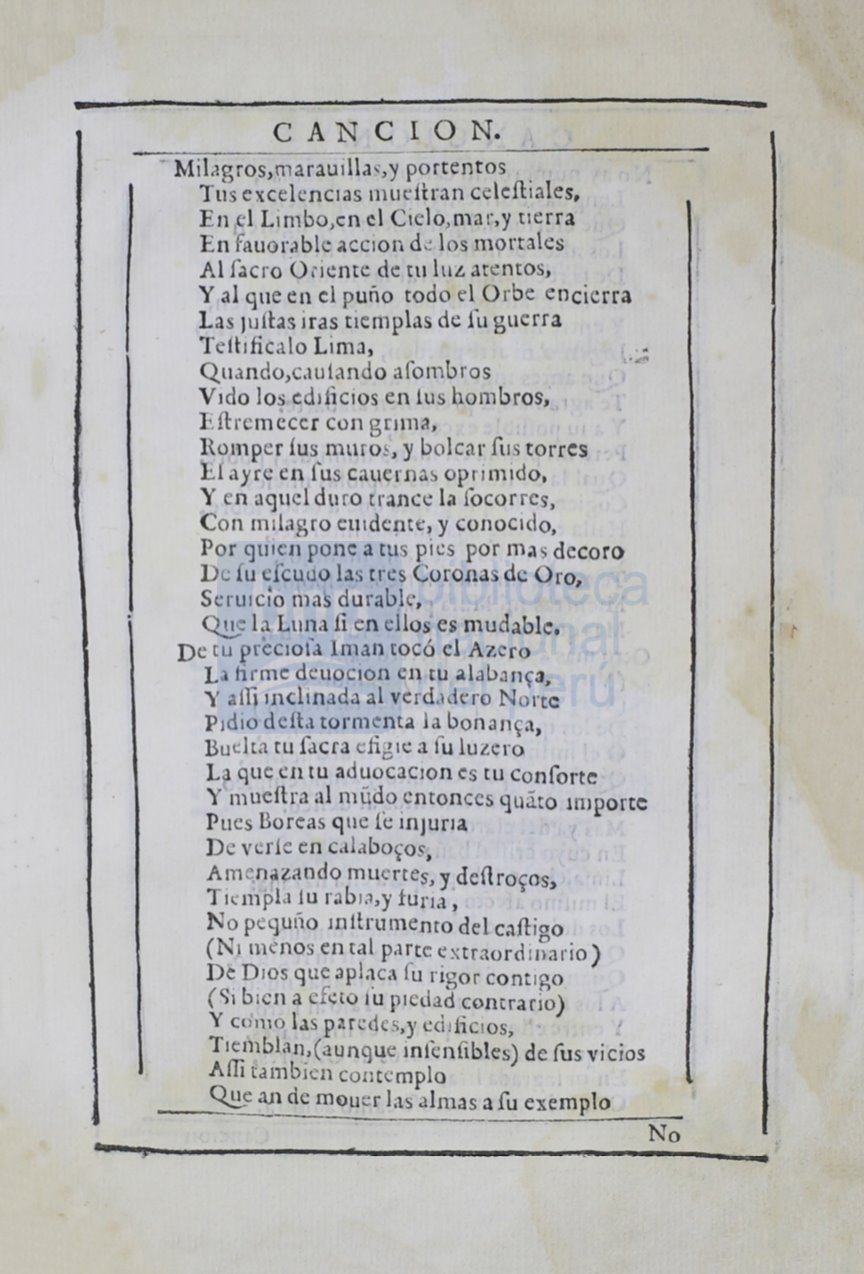 CANCION.
Milagros,marauillas,y portentos
Tus excelencias mueſtran celeſtiales,
En el Limbo,en el Cielo,mar,y tierra
En fauorable accion de los mortales
Al ſacro Oriente de tu luz atentos,
Y al que en el puño todo el Orbe encierra
Las juſtas iras tiemplas de ſu guerra
Teſtificalo Lima,
Quando,cauſando aſombros
Vido los edificios en ſus hombros,
Eſtremecer con grima,
Romper ſus muros, y bolcar ſus torres
El ayre en ſus cauernas oprimido,
Y en aquel duro trance la ſocorres,
Con milagro euidente, y conocido,
Por quien pone a tus pies por mas decoro
De ſu eſcudo las tres Coronas de Oro,
Seruicio mas durable,
Que la Luna ſi en ellos es mudable.
De tu precioſa Iman tocó el Azero
La firme deuocion en tu alabança,
Y aſſi inclinada al verdadero Norte
Pidio deſta tormenta la bonança,
Buelta tu ſacra efigie a ſu luzero
La que en tu aduocacion es tu conſorte
Y mueſtra al mũdo entonces quãto importe
Pues Boreas que ſe injuria
De verſe en calaboços,
Amenazando muertes, y deſtroços,
Tiempla ſu rabia,y furia,
No pequño inſtrumento del caſtigo
(Ni menos en tal parte extraordinario)
De Dios que aplaca ſu rigor contigo
(Si bien a efeto ſu piedad contrario)
Y como las paredes,y edificios,
Tiemblan,(aunque inſenſibles) de ſus vicios
Aſſi tambien contemplo
Que an de mouer las almas a ſu exemplo
No
biblioteca
nacional
del perú